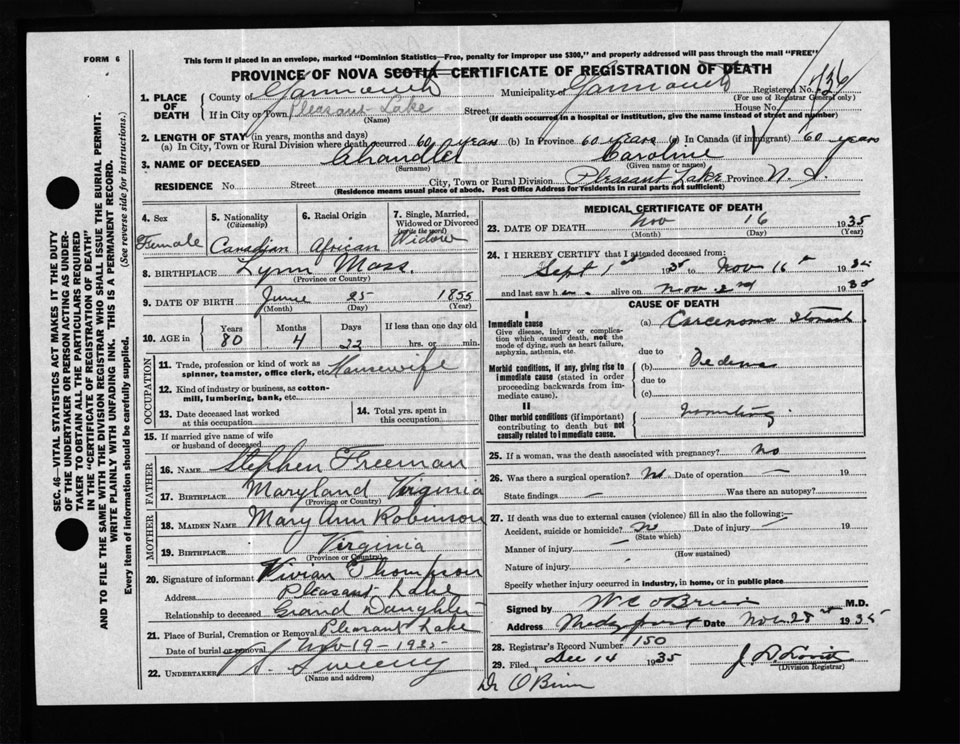 FORM 6
This form if placed in an envelope, marked "Dominion Statistics—Free, penalty for improper use $300," and properly addressed will pass through the mail "FREE"
PROVINCE OF NOVA SCOTIA CERTIFICATE OF REGISTRATION OF DEATH
1. PLACE OF DEATH County of Yarmouth Municipality of Yarmouth Registered No.
(For use of Registrar General only)
If in City or Town Pleasant Lake Street House No.
(Name) (If death occurred in a hospital or institution, give the name instead of street and number)
2. LENGTH OF STAY (in years, months and days)
(a) In City, Town or Rural Division where death occurred 60 years (b) In Province 60 years (c) In Canada (if immigrant) 60 years
3. NAME OF DECEASED Chandler Caroline
(Surname) (Given name or names)
RESIDENCE No. Street City, Town or Rural Division Pleasant Lake Province N. S.
(Residence means usual place of abode. Post Office Address for residents in rural parts not sufficient)
4. Sex Female
5. Nationality (Citizenship) Canadian
6. Racial Origin African
7. Single, Married, Widowed or Divorced (write the word) Widow
8. BIRTHPLACE Lynn Mass.
(Province or Country)
9. DATE OF BIRTH June 25 1855
(Month) (Day) (Year)
10. AGE in Years 80 Months 4 Days 22 If less than one day old hrs. or min.
OCCUPATION
11. Trade, profession or kind of work as spinner, teamster, office clerk, etc. Housewife
12. Kind of industry or business, as cotton-mill, lumbering, bank, etc.
13. Date deceased last worked at this occupation
14. Total yrs. spent in this occupation
15. If married give name of wife or husband of deceased
FATHER
16. NAME Stephen Freeman
17. BIRTHPLACE Maryland Virginia
(Province or Country)
MOTHER
18. MAIDEN NAME Mary Ann Robinson
19. BIRTHPLACE Virginia
(Province or Country)
20. Signature of informant Vivian Thompson
Address Pleasant Lake
Relationship to deceased Grand Daughter
21. Place of Burial, Cremation or Removal Pleasant Lake
Date of burial or removal Nov 19 - 1935
22. UNDERTAKER Sweeny
(Name and address)
MEDICAL CERTIFICATE OF DEATH
23. DATE OF DEATH Nov 16 1935
(Month) (Day) (Year)
24. I HEREBY CERTIFY that I attended deceased from:
Sept 1st 1935 to Nov 16th 1935
and last saw her alive on Nov 2nd 1935
CAUSE OF DEATH
I
Immediate cause
Give disease, injury or complication which caused death, not the mode of dying, such as heart failure, asphyxia, asthenia, etc.
(a) Carcenoma Stomach
due to
Morbid conditions, if any, giving rise to immediate cause (stated in order proceeding backwards from immediate cause).
(b) Oedema
due to
(c)
II
Other morbid conditions (if important) contributing to death but not causally related to immediate cause.
Vomiting
25. If a woman, was the death associated with pregnancy? No
26. Was there a surgical operation? No Date of operation — 19
State findings — Was there an autopsy?
27. If death was due to external causes (violence) fill in also the following:—
Accident, suicide or homicide? No Date of injury — 19
(State which)
Manner of injury —
(How sustained)
Nature of injury —
Specify whether injury occurred in industry, in home, or in public place
Signed by W C O'Brien M.D.
Address Date Nov. 28 1935
28. Registrar's Record Number 150
29. Filed Dec 14 1935
(Division Registrar)
Dr O'Brien
SEC. 46—VITAL STATISTICS ACT MAKES IT THE DUTY
OF THE UNDERTAKER OR PERSON ACTING AS UNDER-
TAKER TO OBTAIN ALL THE PARTICULARS REQUIRED
IN THE "CERTIFICATE OF REGISTRATION OF DEATH"
AND TO FILE THE SAME WITH THE DIVISION REGISTRAR WHO SHALL ISSUE THE BURIAL PERMIT.
WRITE PLAINLY WITH UNFADING INK. THIS IS A PERMANENT RECORD.
Every item of information should be carefully supplied. (See reverse side for instructions.)